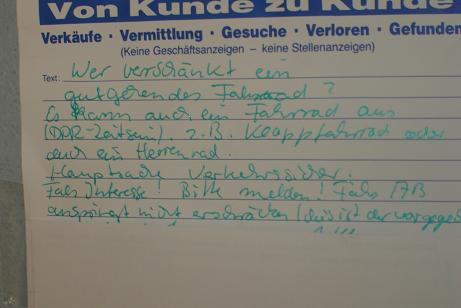 Von Kunde zu Kunde
Verkäufe · Vermittlung · Gesuche · Verloren · Gefunden
(Keine Geschäftsanzeigen – keine Stellenanzeigen)
Text: Wer verschänkt ein
gutgehendes Fahrrad?
Es kann auch ein Fahrrad aus
(DDR-Zeitsein). z.B. Klappfahrrad oder
auch ein Herrenrad.
Hauptsache Verkehrssicher.
Falls Interesse! Bitte melden! Falls AB
anspringt nicht erschräcken (dies ist der